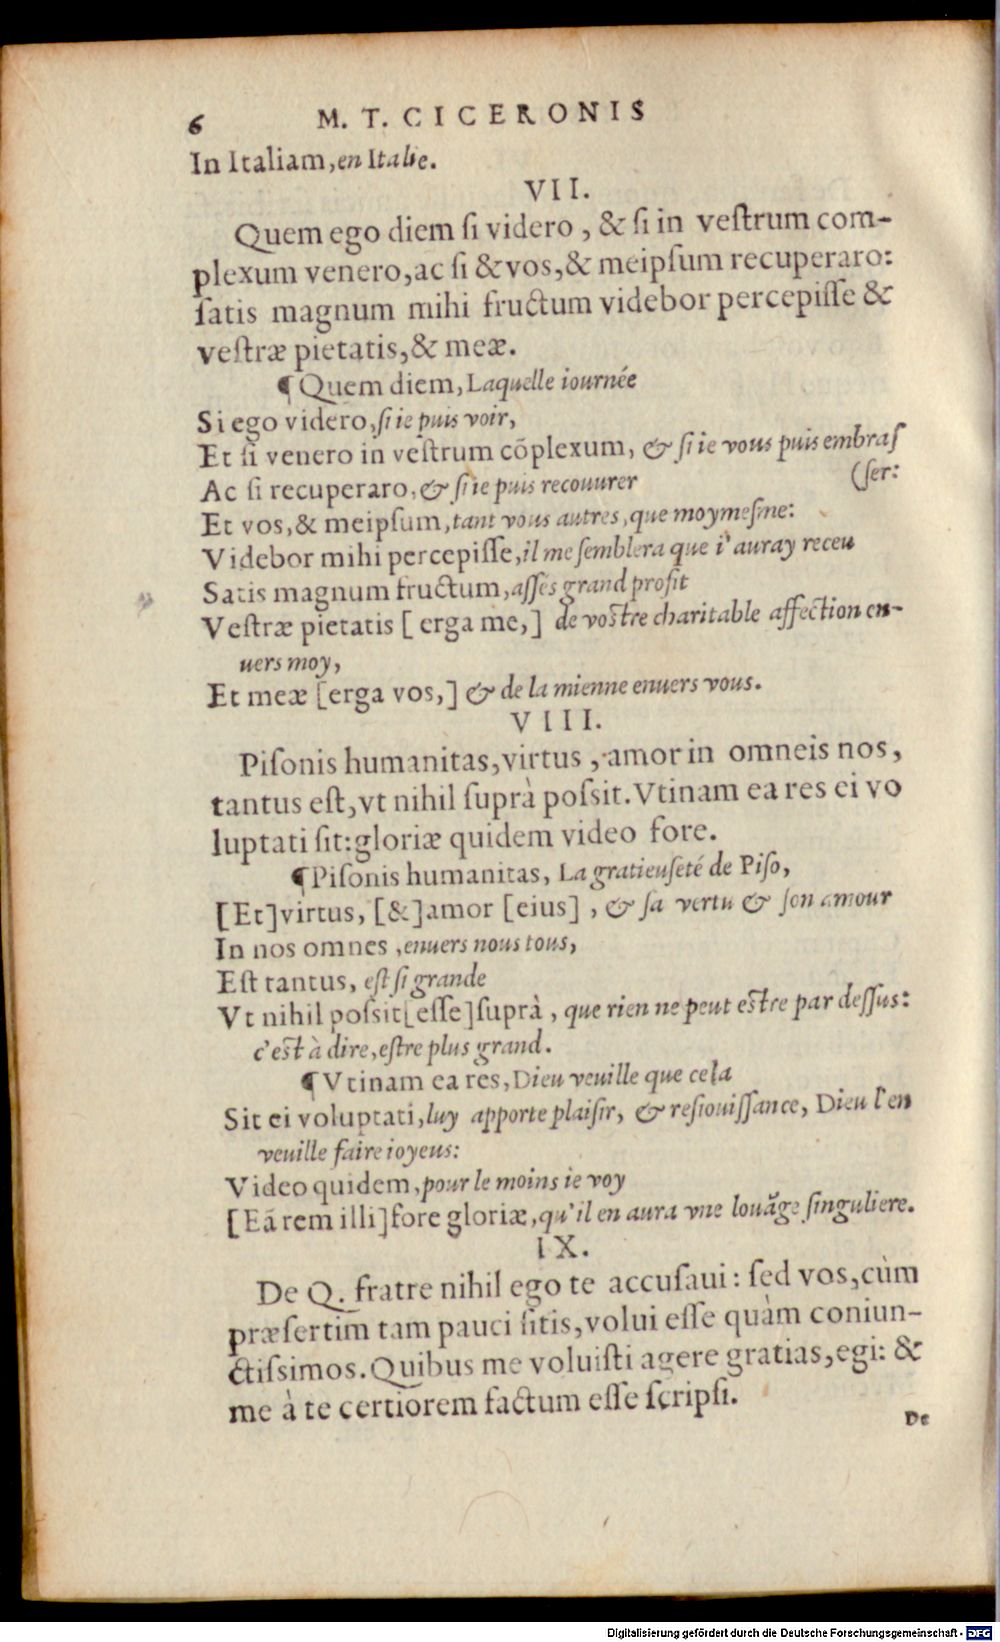 6 M. T. CICERONIS
In Italiam, en Italie.
VII.
Quem ego diem ſi videro, & ſi in veſtrum com-
plexum venero, ac ſi & vos, & meipſum recuperaro:
ſatis magnum mihi fructum videbor percepiſſe &
veſtræ pietatis, & meæ.
¶ Quem diem, Laquelle iournée
Si ego videro, ſi ie puis voir,
Et ſi venero in veſtrum cõplexum, & ſi ie vous puis embraſ
Ac ſi recuperaro, & ſi ie puis recouurer (ſer:
Et vos, & meipſum, tant vous autres, que moymeſme:
Videbor mihi percepiſſe, il me ſemblera que i'auray receu
Satis magnum fructum, aſſés grand profit
Veſtræ pietatis [erga me,] de voſtre charitable affection en-
uers moy,
Et meæ [erga vos,] & de la mienne enuers vous.
VIII.
Piſonis humanitas, virtus, amor in omneis nos,
tantus eſt, vt nihil ſuprà poſsit. Vtinam ea res ei vo
luptati ſit: gloriæ quidem video fore.
¶ Piſonis humanitas, La gratieuſeté de Piſo,
[Et] virtus, [&] amor [eius], & ſa vertu & ſon amour
In nos omnes, enuers nous tous,
Eſt tantus, eſt ſi grande
Vt nihil poſsit [eſſe] ſuprà, que rien ne peut eſtre par deſſus:
c'eſt à dire, eſtre plus grand.
¶ Vtinam ea res, Dieu veuille que cela
Sit ei voluptati, luy apporte plaiſir, & reſiouiſſance, Dieu l'en
veuille faire ioyeus:
Video quidem, pour le moins ie voy
[Eã rem illi] fore gloriæ, qu'il en aura vne louãge ſinguliere.
IX.
De Q. fratre nihil ego te accuſaui: ſed vos, cùm
præſertim tam pauci ſitis, volui eſſe quàm coniun-
ctiſsimos. Quibus me voluiſti agere gratias, egi: &
me à te certiorem factum eſſe ſcripſi.
De
Digitalisierung gefördert durch die Deutsche Forschungsgemeinschaft - DFG